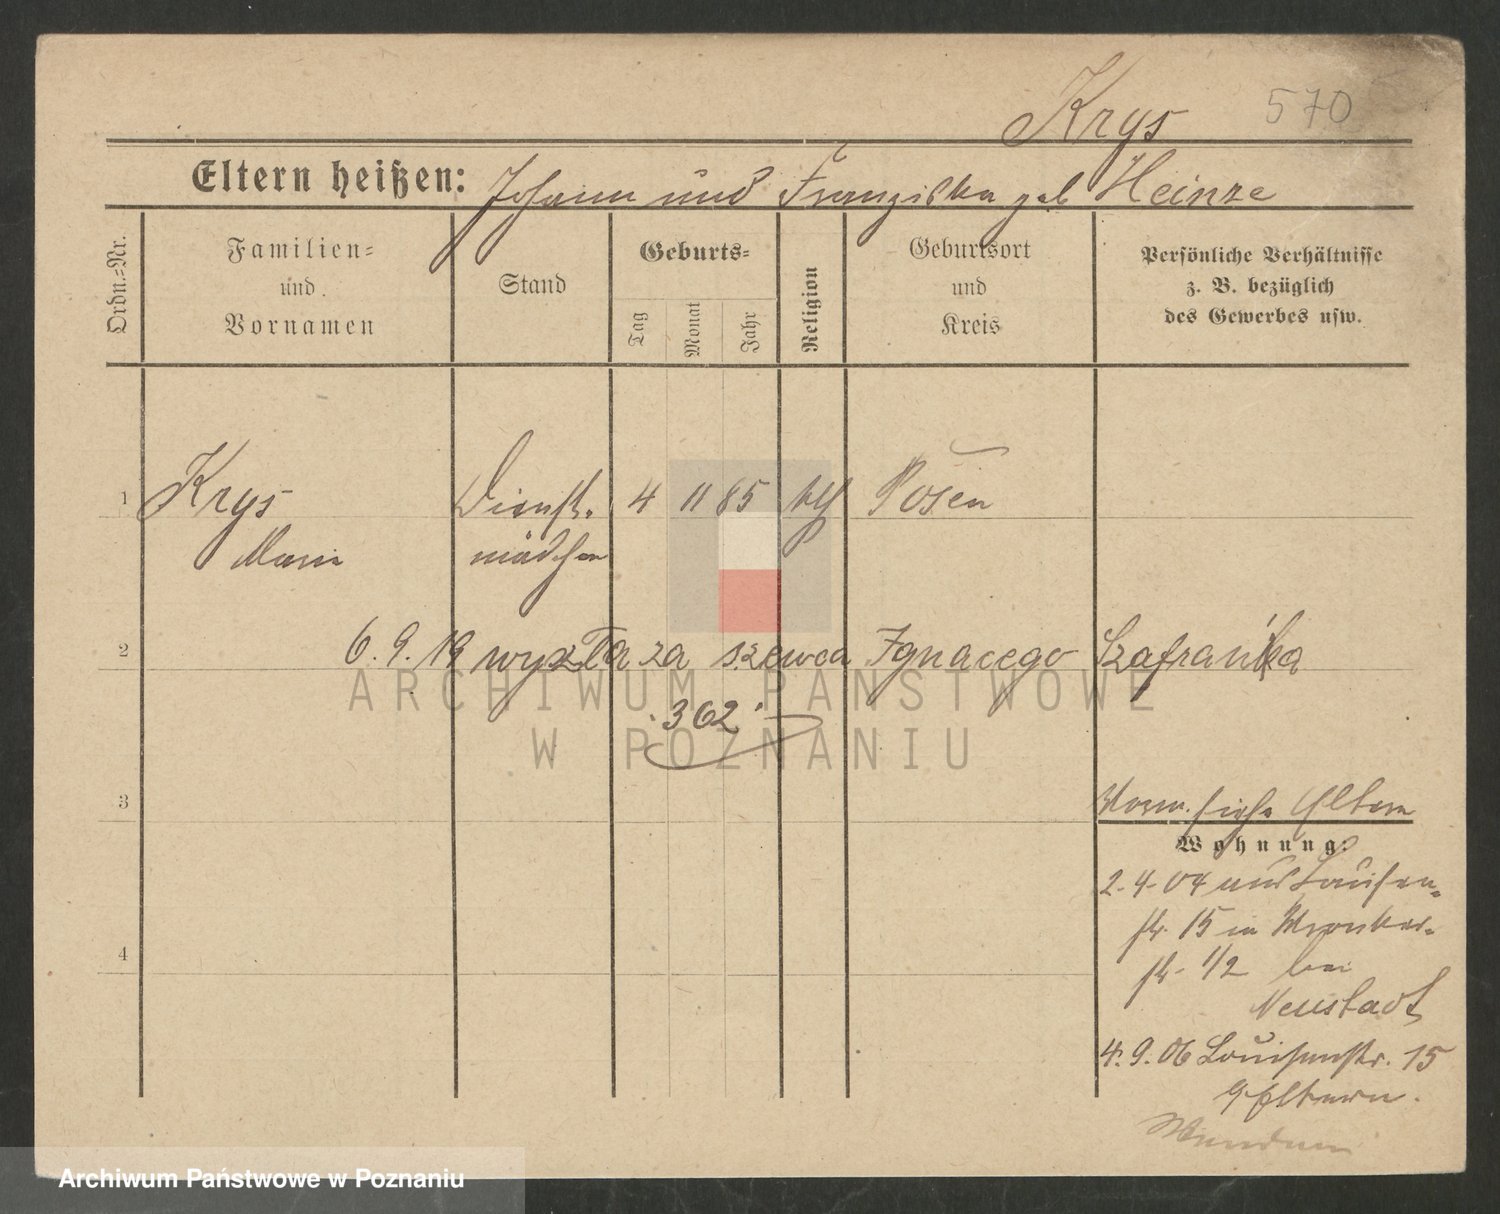 Krys 570
Eltern heißen: Johann und Franziska geb Heinze
Ordn.=Nr.
Familien=
und
Vornamen
Stand
Geburts=
Tag
Monat
Jahr
Religion
Geburtsort
und
Kreis
Persönliche Verhältnisse
z. B. bezüglich
des Gewerbes usw.
1 Krys Dienst- 4 11 85 kth Posen
Marie mädchen
2 6.9.19 wyszła za szewca Ignacego Szafrańka
ARCHIWUM PAŃSTWOWE
362
W POZNANIU
3 Vorm. siehe Eltern
Wohnung:
2.4.04 aus Louisen=
str. 15 in Wronker=
4 str. 1/2 bei
Neustadt
4.9.06 Louisenstr. 15
Eltern.
Archiwum Państwowe w Poznaniu